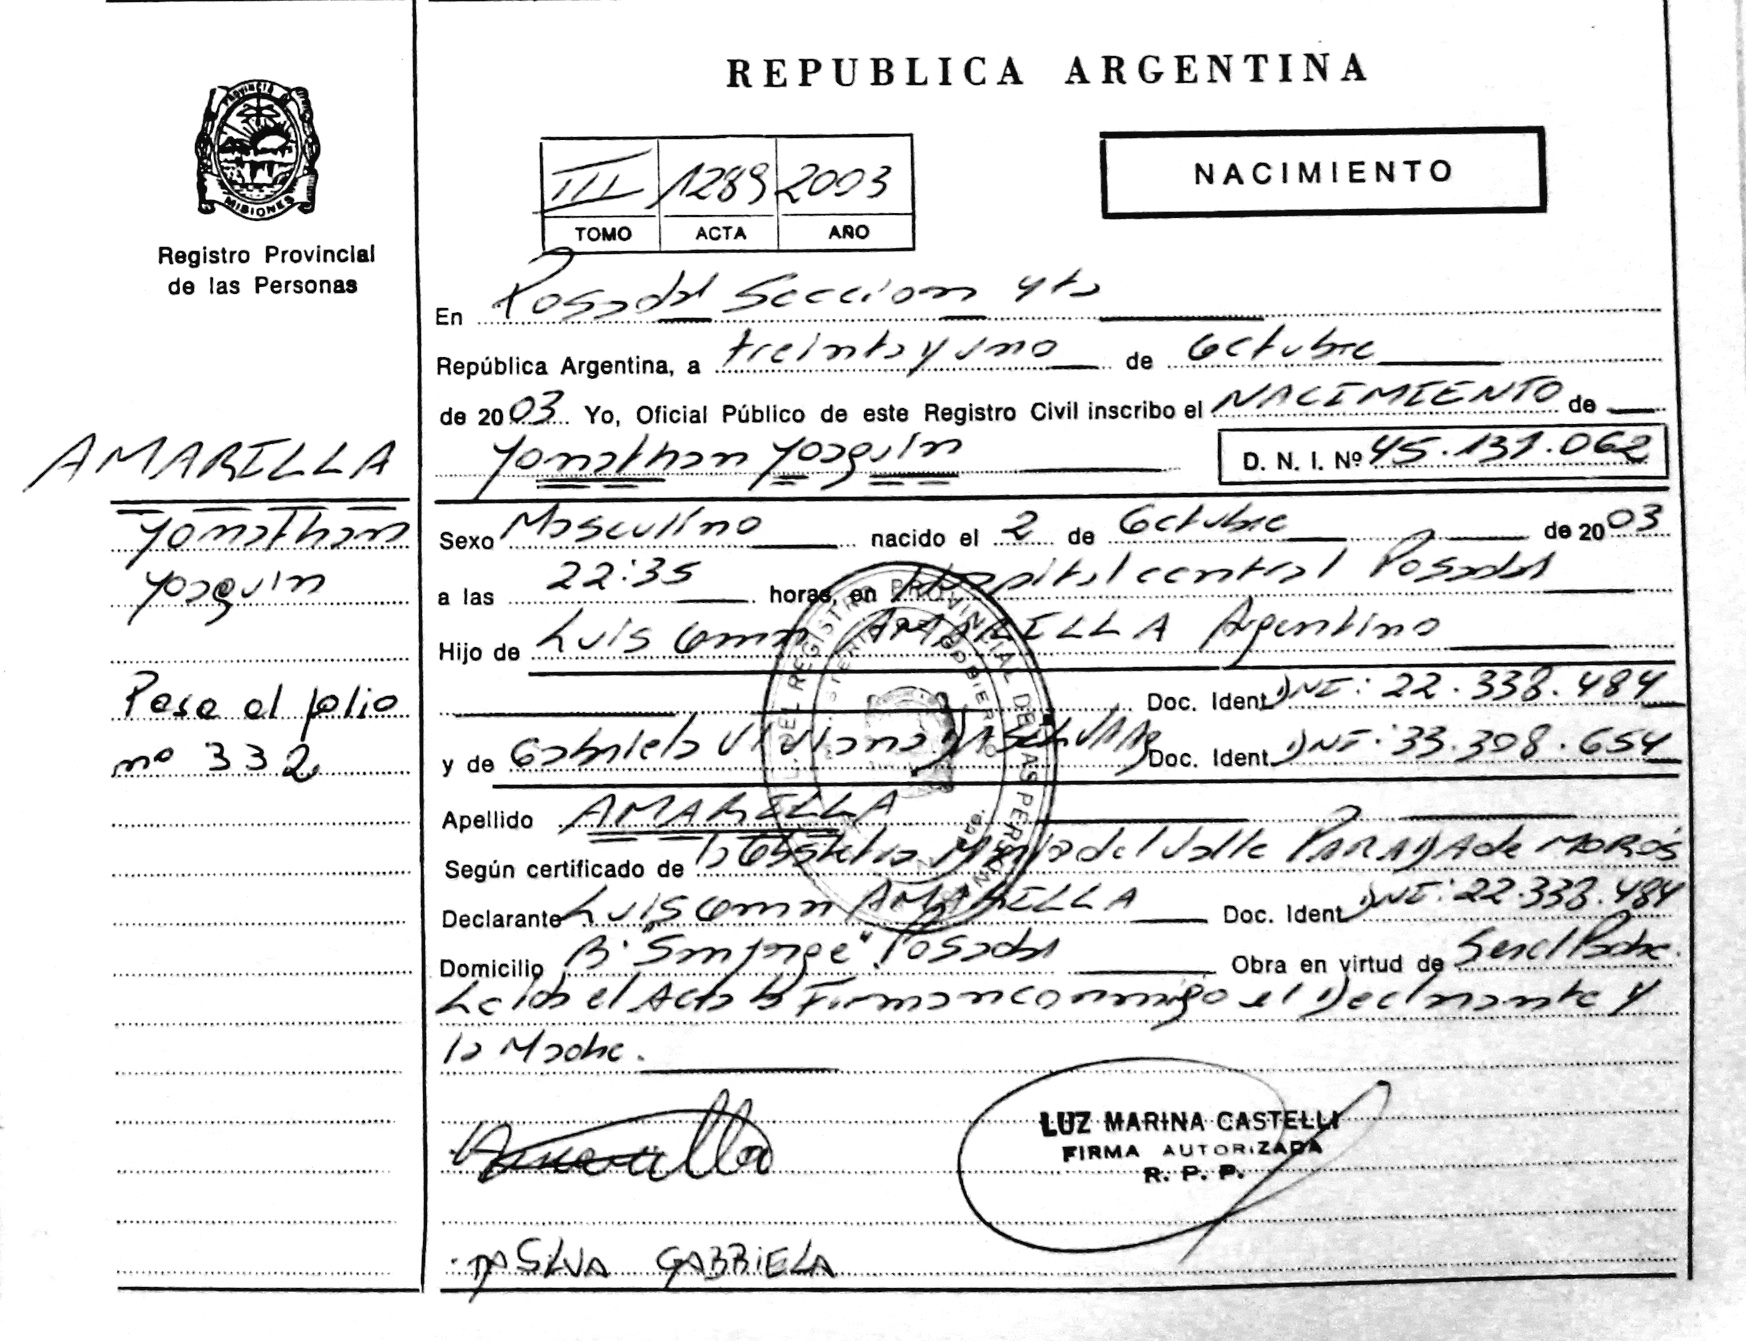 PROVINCIA DE
MISIONES
Registro Provincial
de las Personas
AMARILLA
Yonathan
Yoaquin
Pasa al folio
nº 332
REPUBLICA ARGENTINA
III 1289 2003
TOMO ACTA AÑO
NACIMIENTO
En Posadas Seccion 4ta
República Argentina, a treinta y uno de Octubre
de 2003 Yo, Oficial Público de este Registro Civil inscribo el NACIMIENTO de
Yonathan Yoaquin D. N. I. Nº 45.131.062
Sexo Masculino nacido el 2 de Octubre de 2003
a las 22:35 horas, en Hospital central Posadas
Hijo de Luis AMARILLA Argentino
Doc. Ident DNI: 22.338.484
y de Gabriela Viviana DA SILVA Arg Doc. Ident DNI: 33.308.654
Apellido AMARILLA
Según certificado de la Obstetra del Valle PARADA de MOROS
Declarante Luis AMARILLA Doc. Ident DNI: 22.338.484
Domicilio Bº "San Jorge" Posadas Obra en virtud de Ser el Padre.
Leida el Acta la Firman conmigo el Declarante y
la Madre.
Amarilla
LUZ MARINA CASTELLI
FIRMA AUTORIZADA
R. P. P.
DA SILVA GABRIELA
DEL REGISTRO PROVINCIAL DE LAS PERSONAS
MINISTERIO DE GOBIERNO